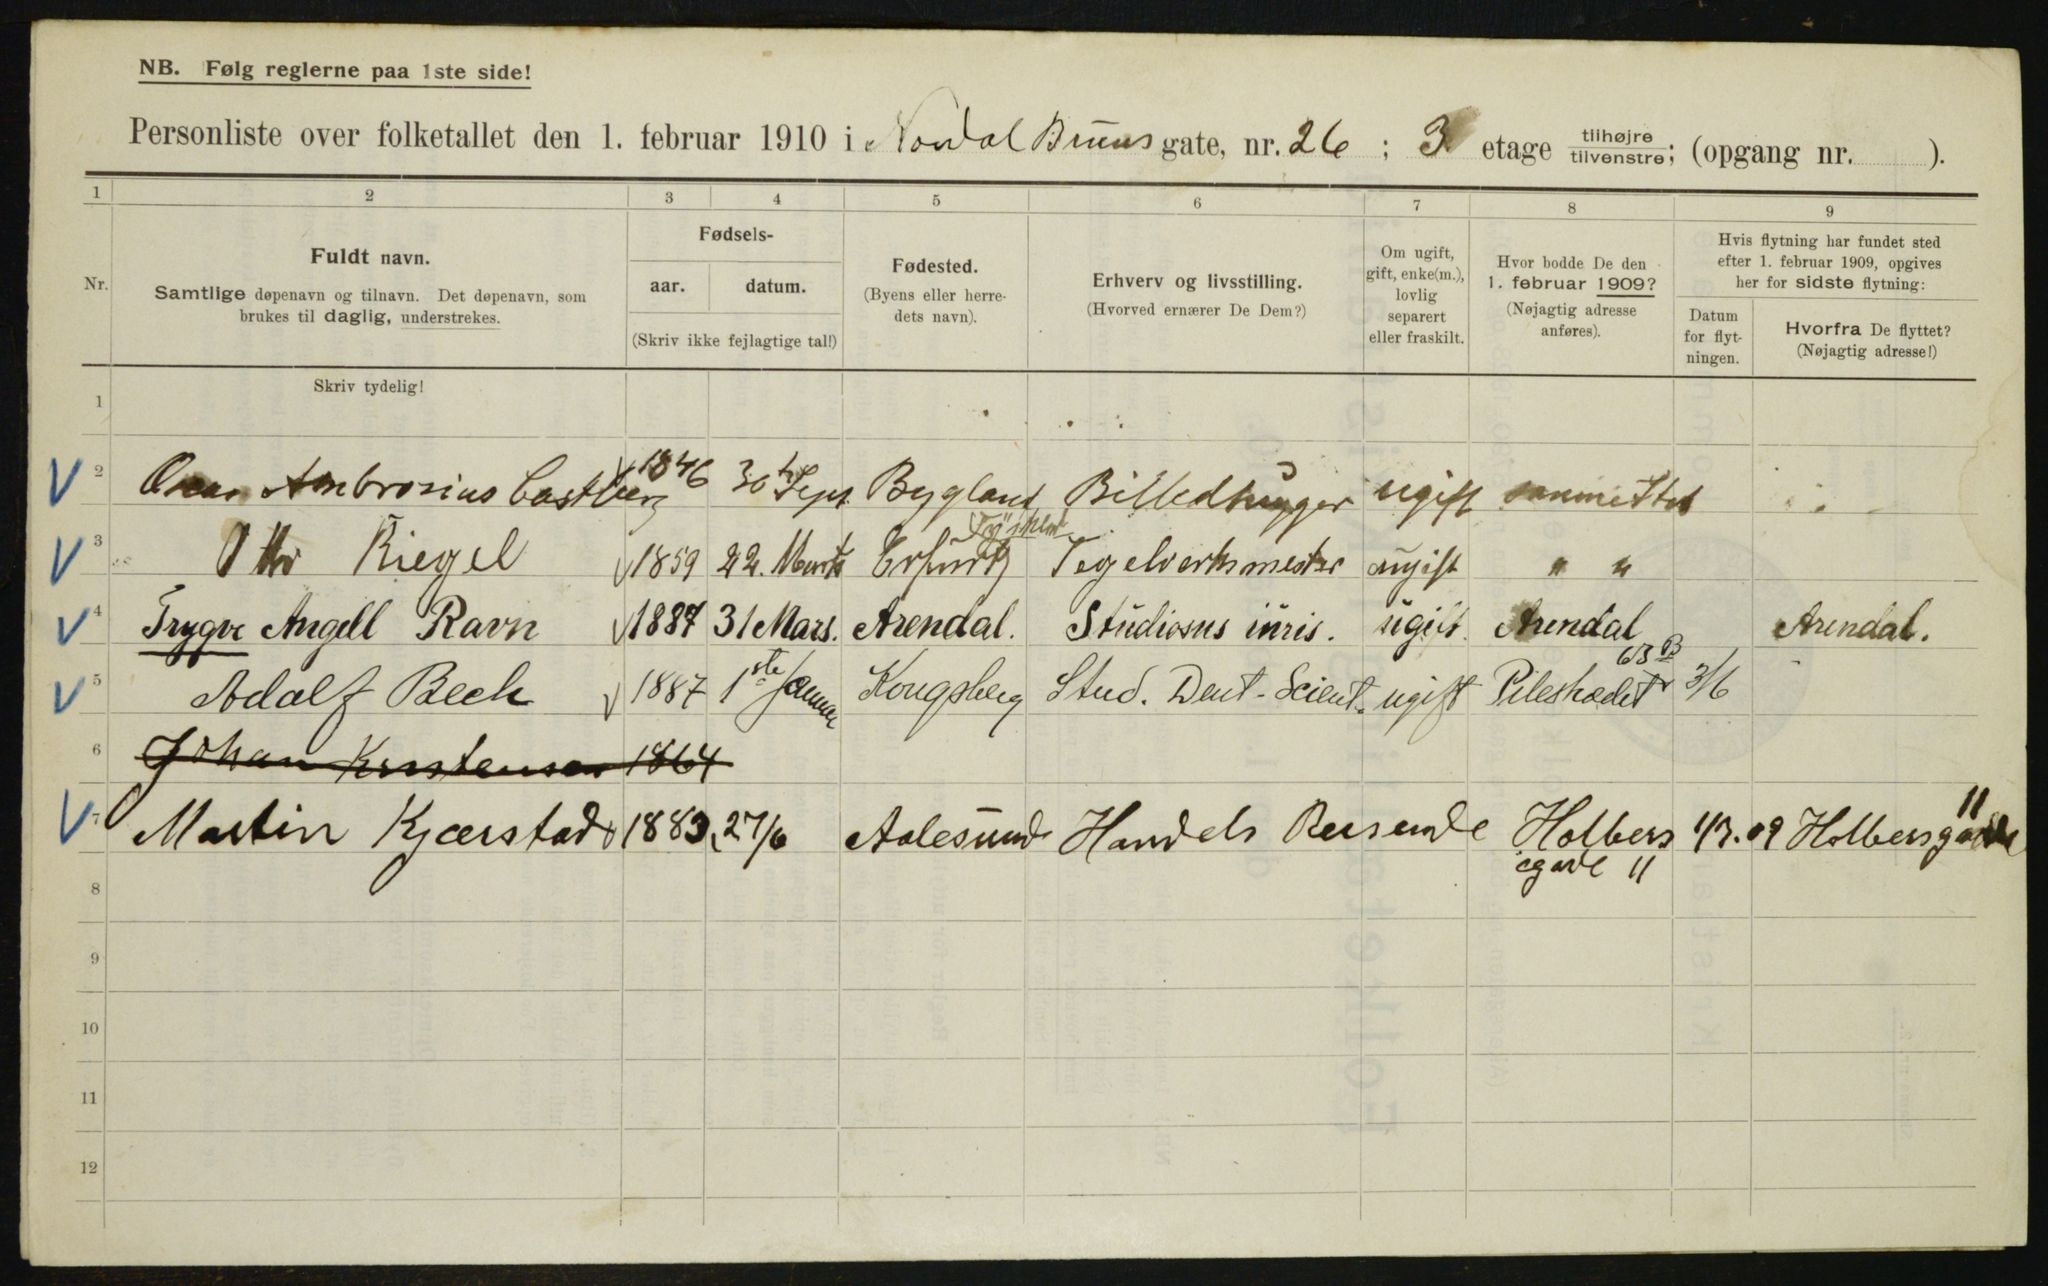 NB. Følg reglerne paa 1ste side!
Personliste over folketallet den 1. februar 1910 i Nordal Bruns gate, nr. 26 ; 3 etage tilhøjre tilvenstre; (opgang nr. ).
1 2 3 4 5 6 7 8 9
Nr.
Fuldt navn.
Samtlige døpenavn og tilnavn. Det døpenavn, som
brukes til daglig, understrekes.
Fødsels-
aar. datum.
(Skriv ikke fejlagtige tal!)
Fødested.
(Byens eller herre-
dets navn).
Erhverv og livsstilling.
(Hvorved ernærer De Dem?)
Om ugift,
gift, enke(m.),
lovlig
separert
eller fraskilt.
Hvor bodde De den
1. februar 1909?
(Nøjagtig adresse
anføres).
Hvis flytning har fundet sted
efter 1. februar 1909, opgives
her for sidste flytning:
Datum
for flyt-
ningen.
Hvorfra De flyttet?
(Nøjagtig adresse!)
Skriv tydelig!
1
2 Ambrosius Castberg 1846 30 Sept. Bygland Billedhugger ugift samme Sted
3 Otto Riegel 1859 22. Marts Erfurt Tegelverksmester ugift " "
4 Trygve Angell Ravn 1887 31 Mars. Arendal. Studiosus iuris. ugift. Arendal Arendal.
5 Adolf Bech 1887 1ste Januar Kongsberg Stud. Dent. Scient. ugift Pilestrædet 63 B 3/6
6 Johan Kristensen 1864
7 Martin Kjærstad 1883 27/6 Aalesund Handels Reisende Holbers
gade 11 1/3.09 Holbersgade 11
8
9
10
11
12